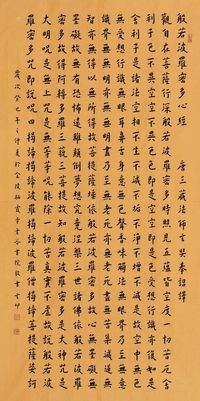 般若波羅蜜多心經 唐三藏法師玄奘奉詔譯
觀自在菩薩行深般若波羅蜜多時照見五蘊皆空度一切苦厄舍
利子色不異空空不異色色即是空空即是色受想行識亦復如是
舍利子是諸法空相不生不滅不垢不淨不增不減是故空中無色
無受想行識無眼耳鼻舌身意無色聲香味觸法無眼界乃至無意
識界無無明亦無無明盡乃至無老死亦無老死盡無苦集滅道無
智亦無得以無所得故菩提薩埵依般若波羅蜜多故心無罣礙無
罣礙故無有恐怖遠離顛倒夢想究竟涅槃三世諸佛依般若波羅
蜜多故得阿耨多羅三藐三菩提故知般若波羅蜜多是大神咒是
大明咒是無上咒是無等等咒能除一切苦真實不虛故說般若波
羅蜜多咒即說咒曰揭諦揭諦波羅揭諦波羅僧揭諦菩提薩婆訶
歲次癸巳年